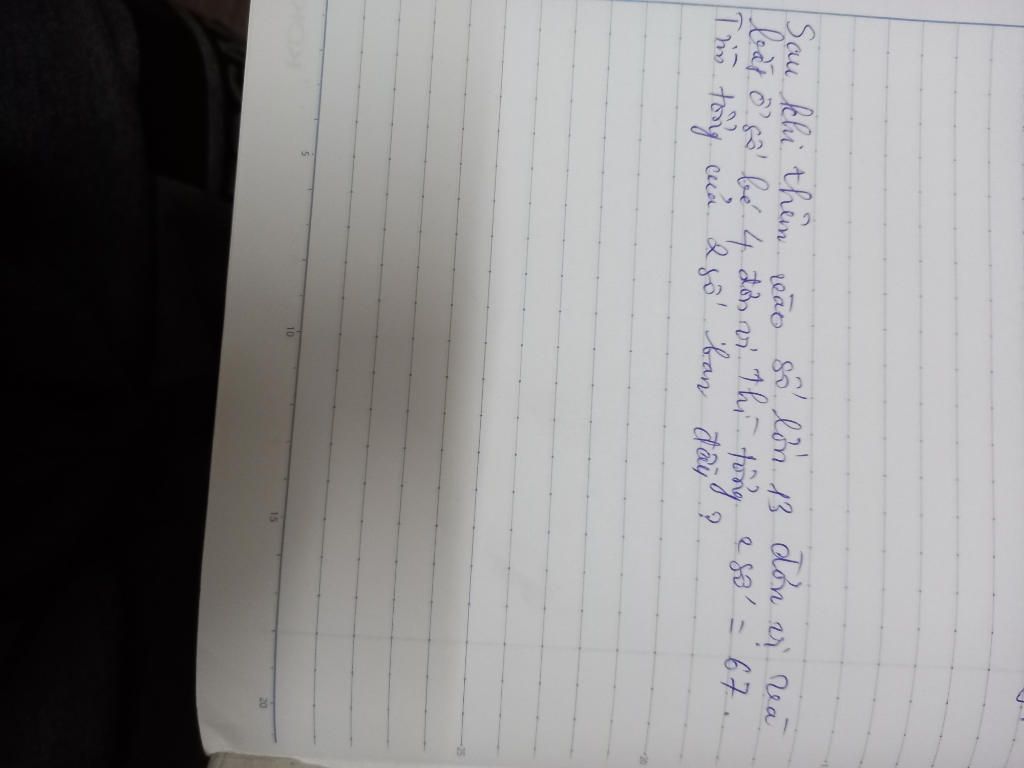 Sau khi thêm vào số lớn 13 đơn vị và
bớt ở số bé 4 đơn vị thì tổng 2 số = 67.
Tìm tổng của 2 số ban đầu?
5
10
15
20